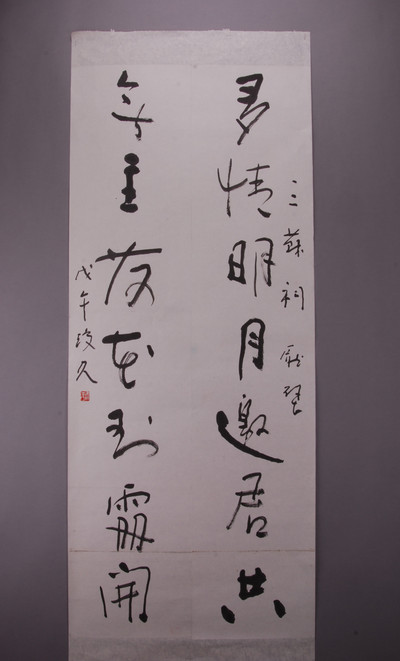 三蘇祠
多情明月邀君共
無主荷花到處開
戊午